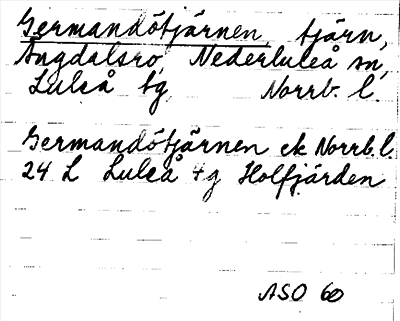 Germandötjärnen, tjärn,
Ängdalsro, Nederluleå sn,
Luleå tg Norrb. l.
Germandötjärnen ek Norrb. l.
24 L Luleå 4g Holfjärden
ASO 60